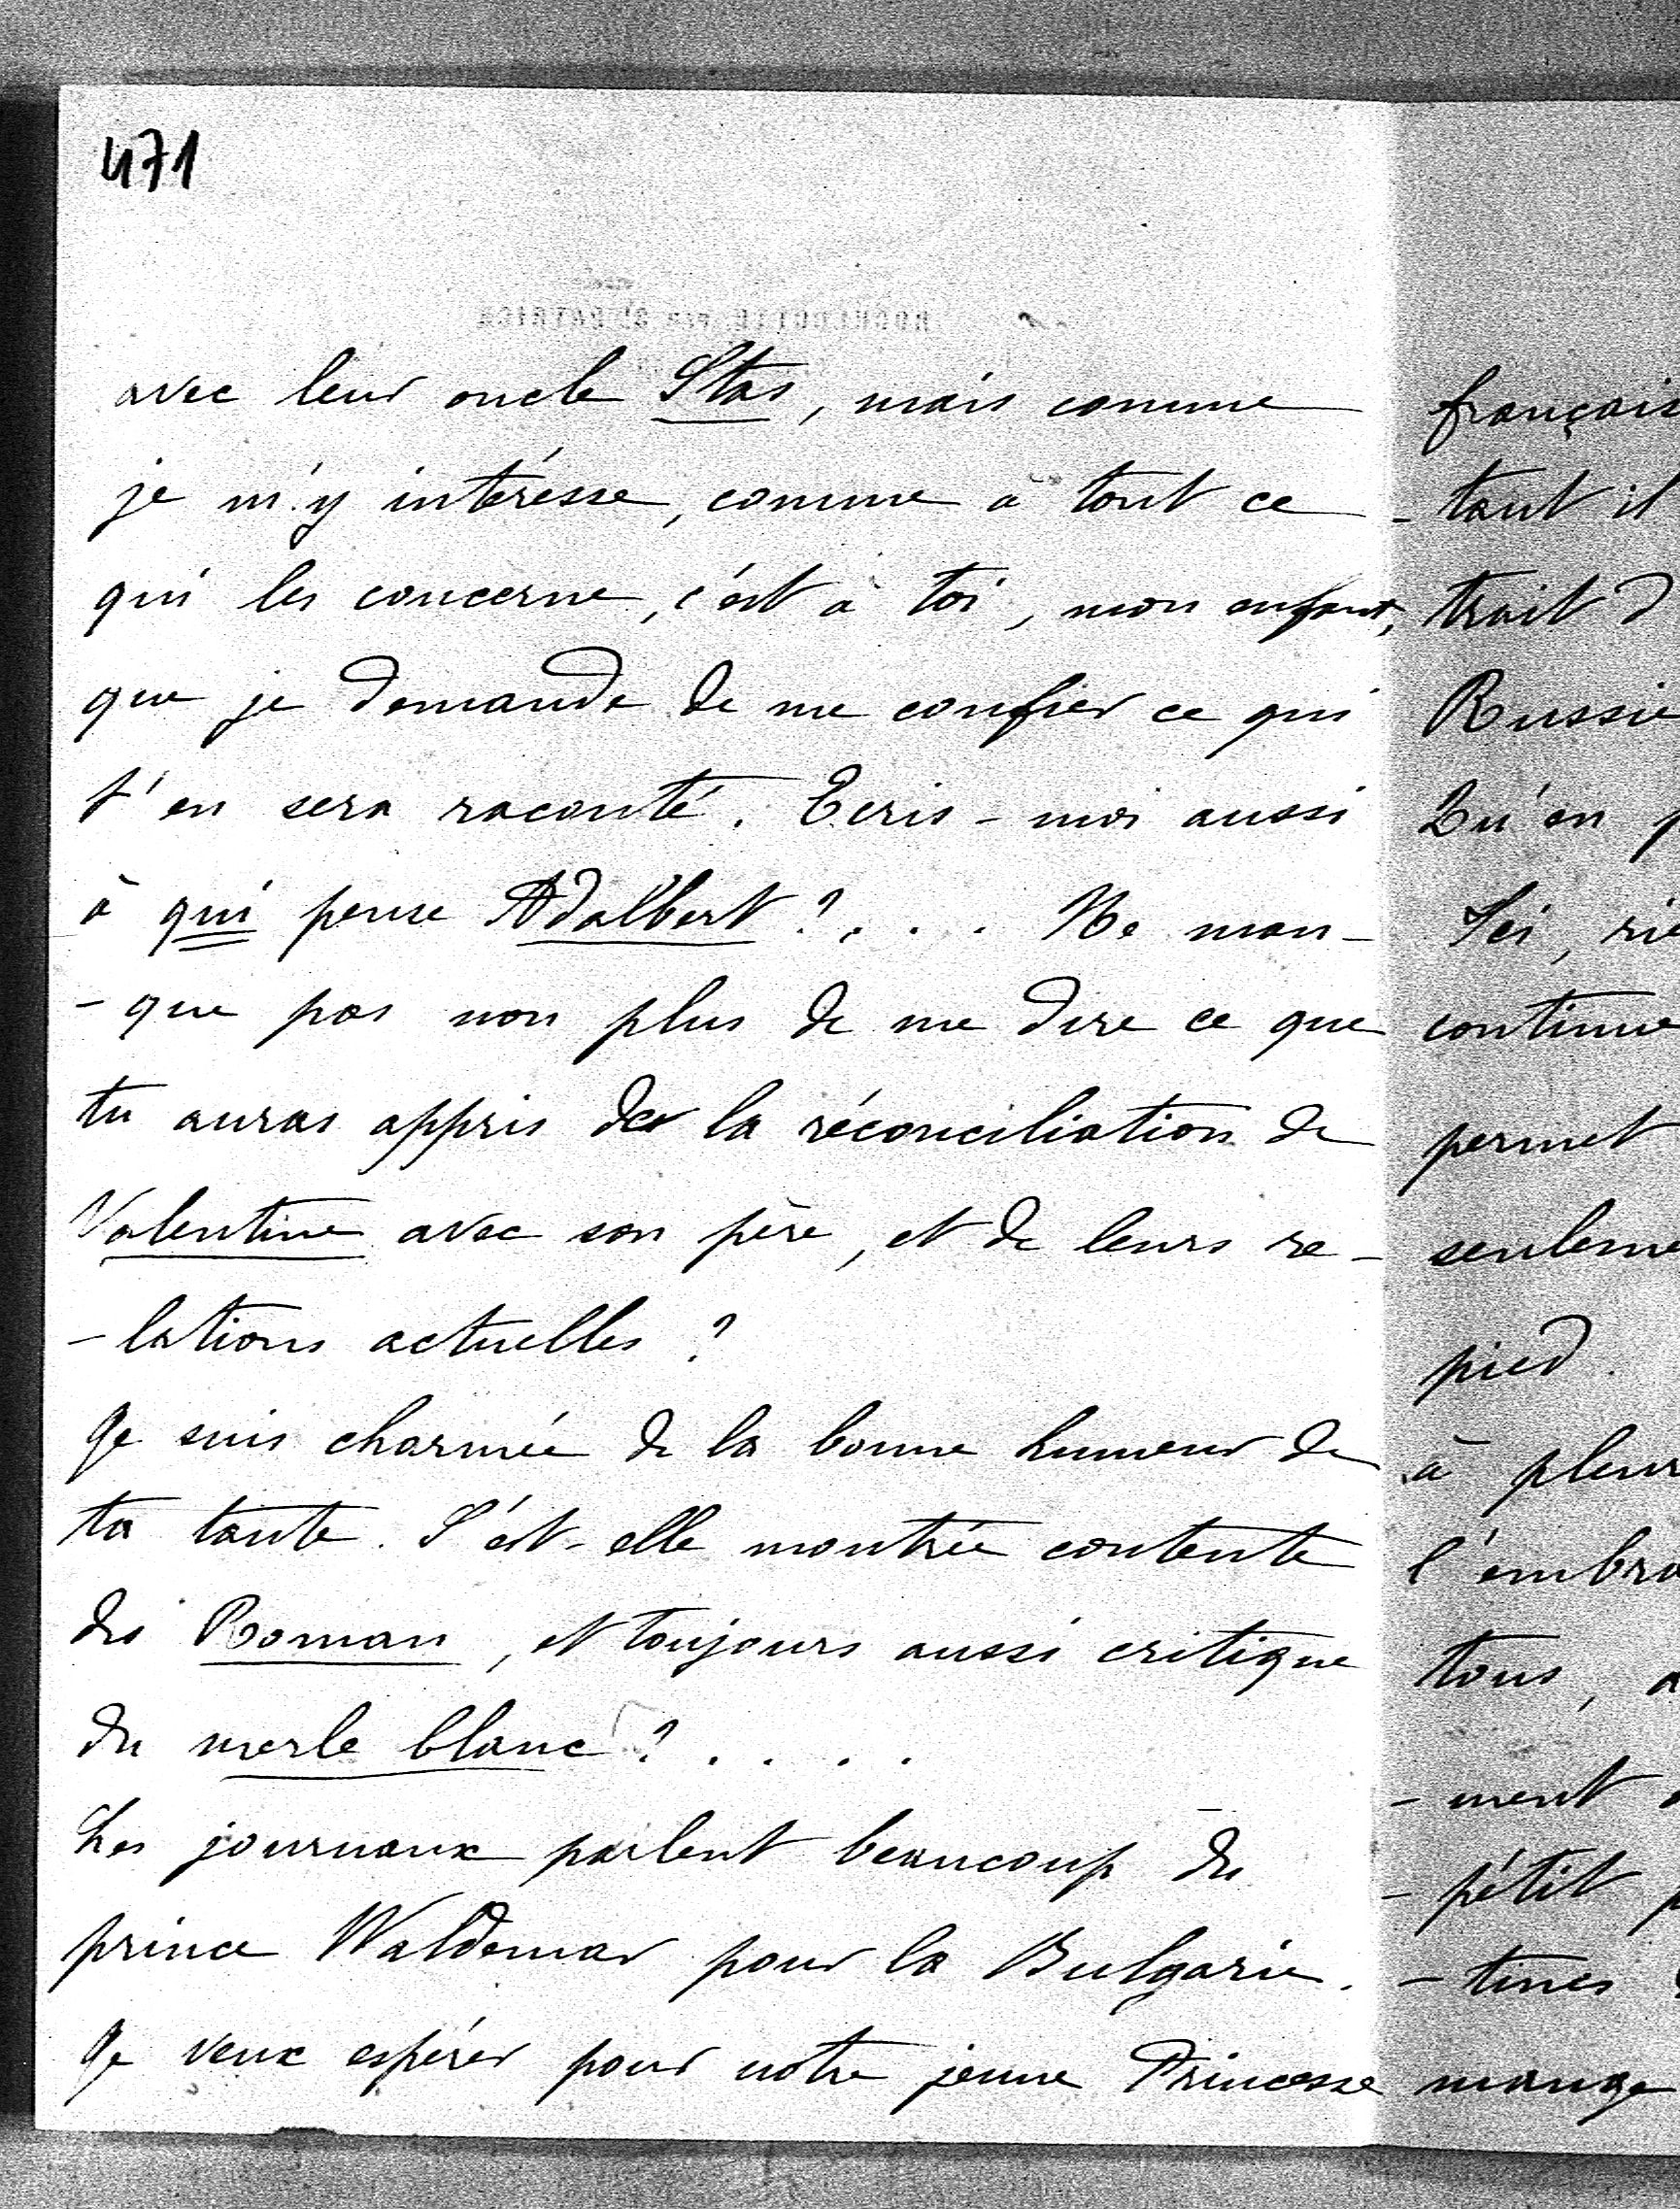 471
avec leur oncle Stas, mais comme
je m'y intéresse, comme à tout ce
qui les concerne, c'est à toi, mon enfant,
que je demande de me confier ce qui
t'en sera raconté. Ecris-moi aussi
à qui pense Adalbert ?. . . Ne man-
-que pas non plus de me dire ce que
tu auras appris de la réconciliation de
Valentine avec son père, et de leurs re-
-lations actuelles ?
Je suis charmée de la bonne humeur de
ta tante. S'est-elle montrée contente
du Roman, et toujours aussi critique
du merle blanc ? . . . .
Les journaux parlent beaucoup du
prince Waldemar pour la Bulgarie.
Je veux espérer pour notre jeune Princesse
français
-tant il
trait d
Russie
Qu'en p
Ici, rie
continue
permet
seuleme
pied.
à pleur
l'embra
tous, a
-ment
-pétit p
-tines
mange